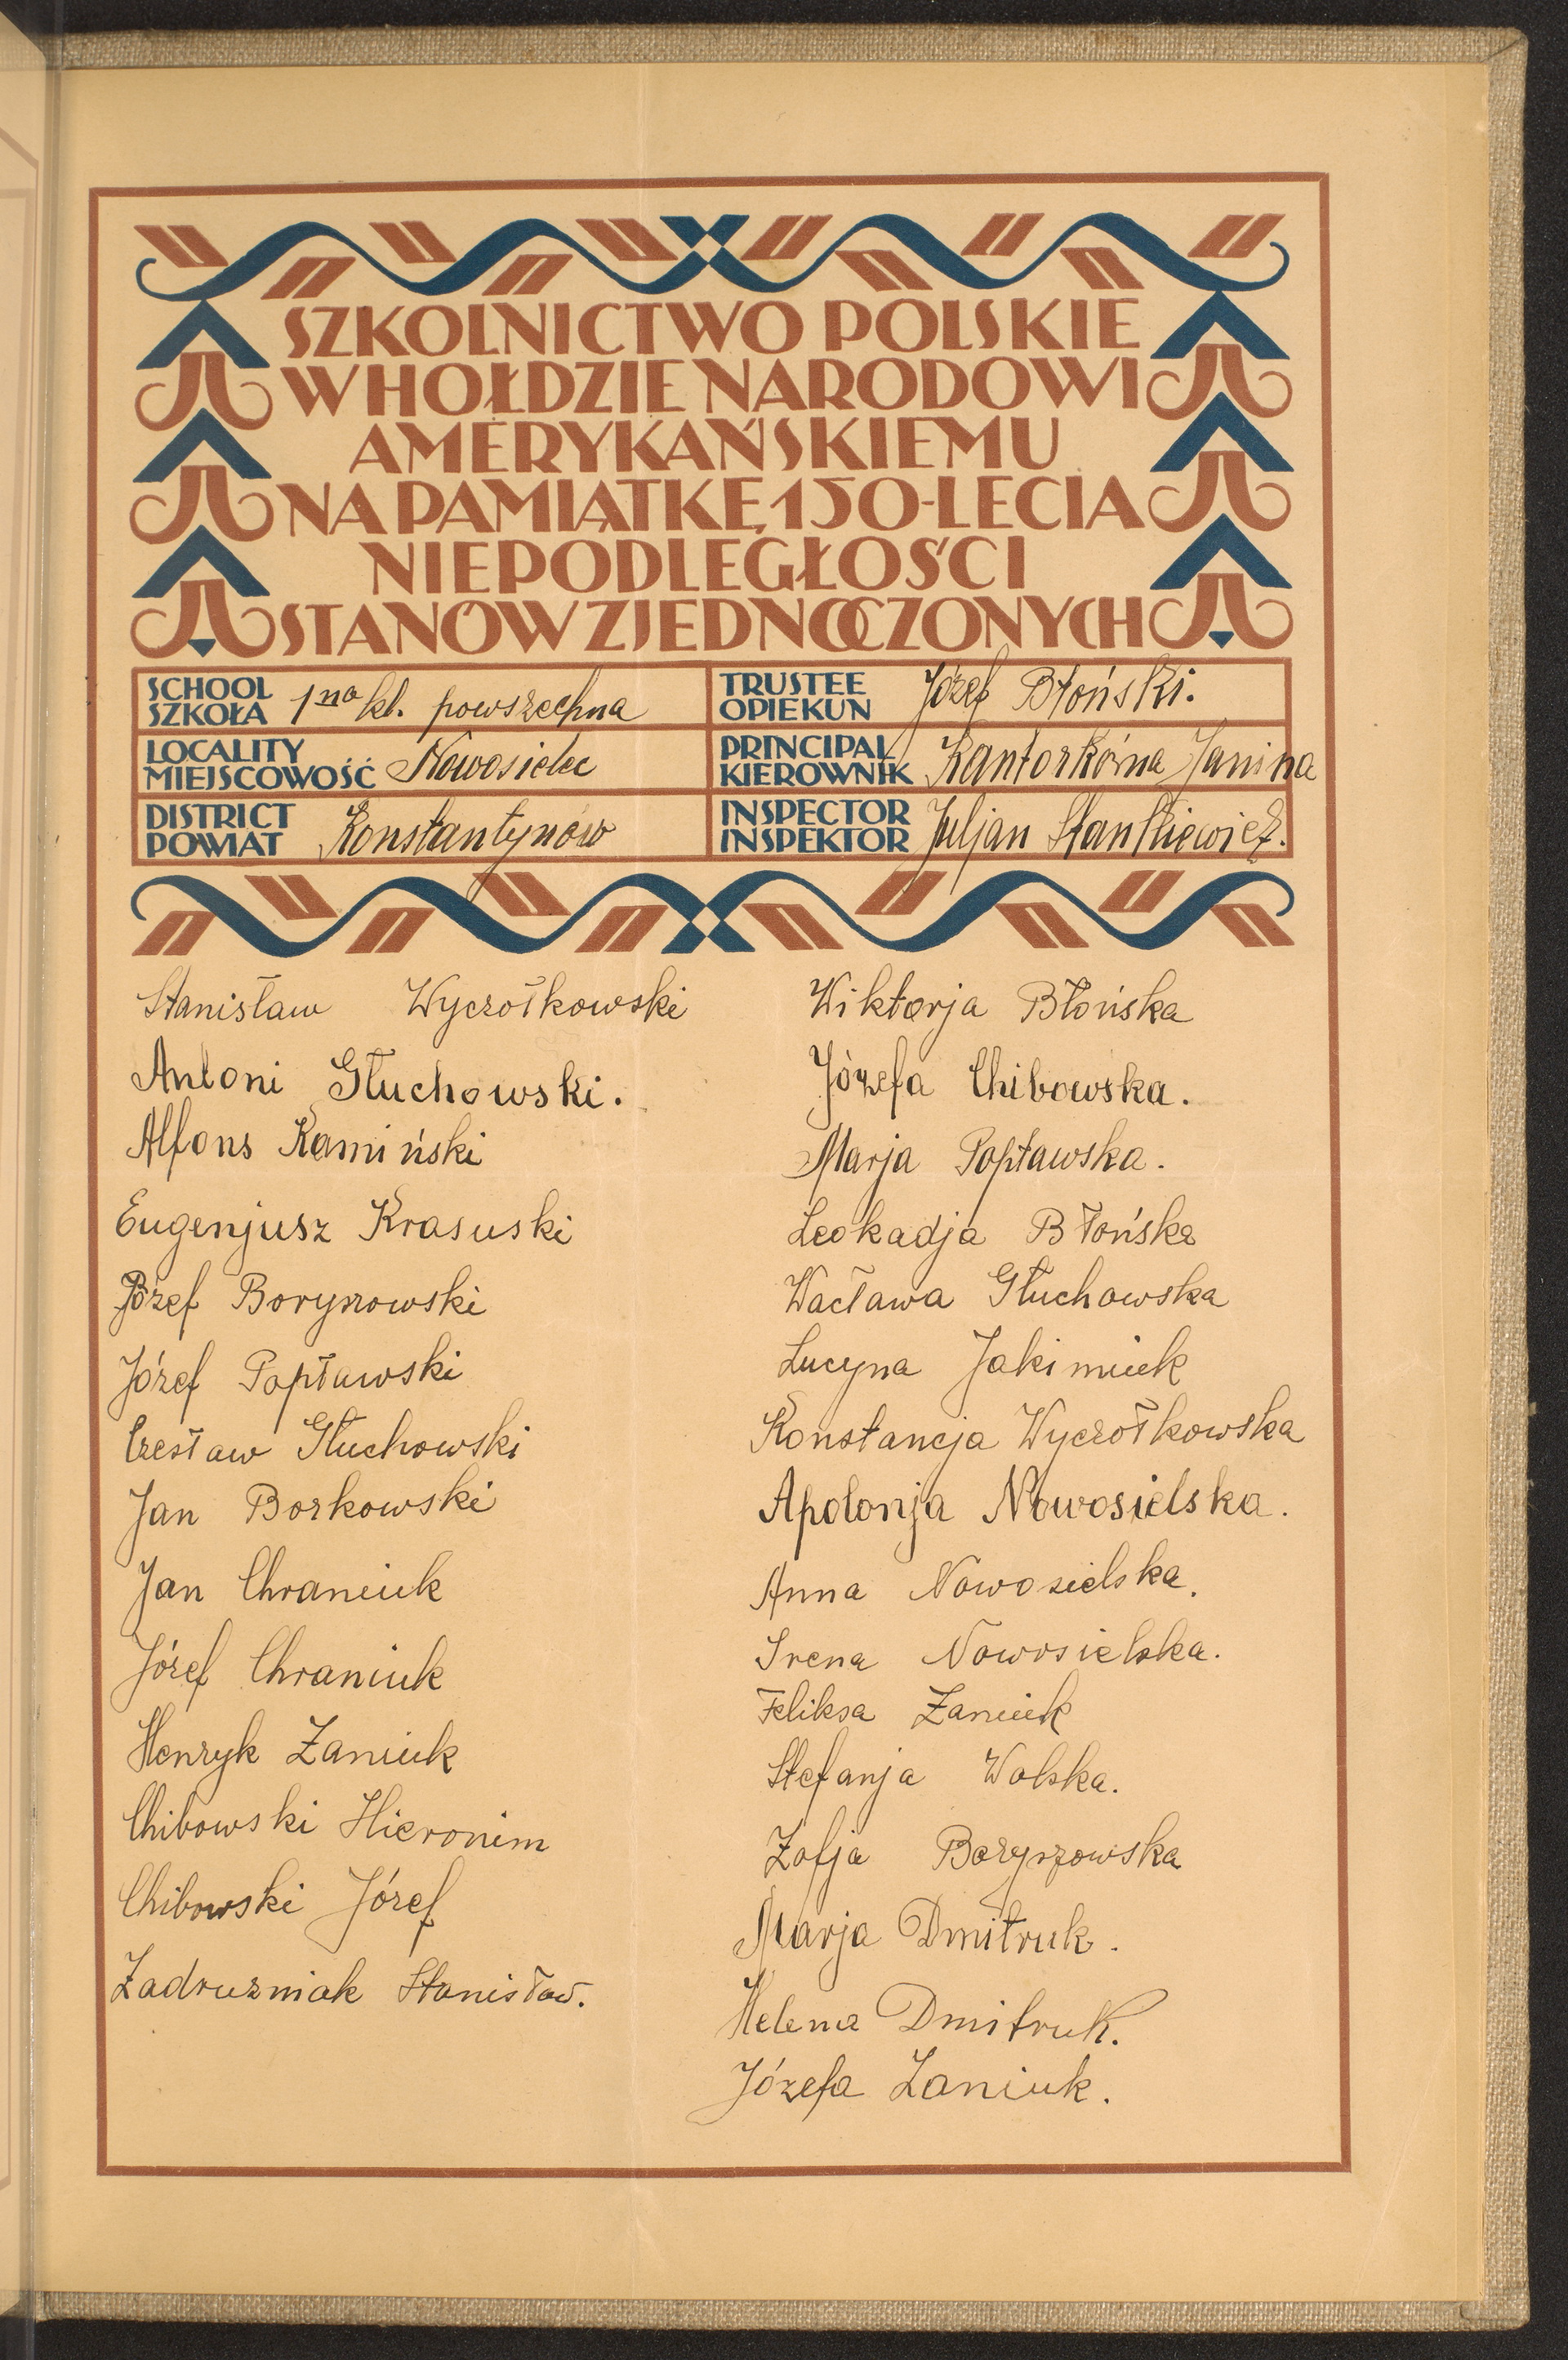 SZKOLNICTWO POLSKIE
W HOŁDZIE NARODOWI
AMERYKAŃSKIEMU
NA PAMIĄTKĘ 150-LECIA
NIEPODLEGŁOŚCI
STANÓW ZJEDNOCZONYCH
SCHOOL
SZKOŁA 1na kl. powszechna
TRUSTEE
OPIEKUN Józef Błoński.
LOCALITY
MIEJSCOWOŚĆ Nowosielec
PRINCIPAL
KIEROWNIK Kantorkówna Janina
DISTRICT
POWIAT Konstantynów
INSPECTOR
INSPEKTOR Juljan Stankiewicz.
Stanisław Wyczołkowski
Antoni Głuchowski.
Alfons Kamiński
Eugenjusz Krasuski
Józef Boryszowski
Józef Popławski
Czesław Głuchowski
Jan Borkowski
Jan Chraniuk
Józef Chraniuk
Henryk Zaniuk
Chibowski Hieronim
Chibowski Józef
Zadruzniak Stanisław.
Wiktorja Błońska
Józefa Chibowska.
Marja Popławska.
Leokadja Błońska
Wacława Głuchowska
Lucyna Jakimiuk
Konstancja Wyczołkowska
Apolonja Nowosielska.
Anna Nowosielska.
Irena Nowosielska.
Feliksa Zaniuk
Stefanja Wolska.
Zofja Boryszowska
Marja Dmitruk.
Helena Dmitruk.
Józefa Zaniuk.